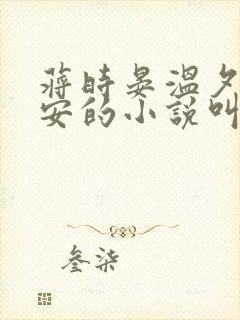 蔣時晏溫夕
安的小說叫
叁柒